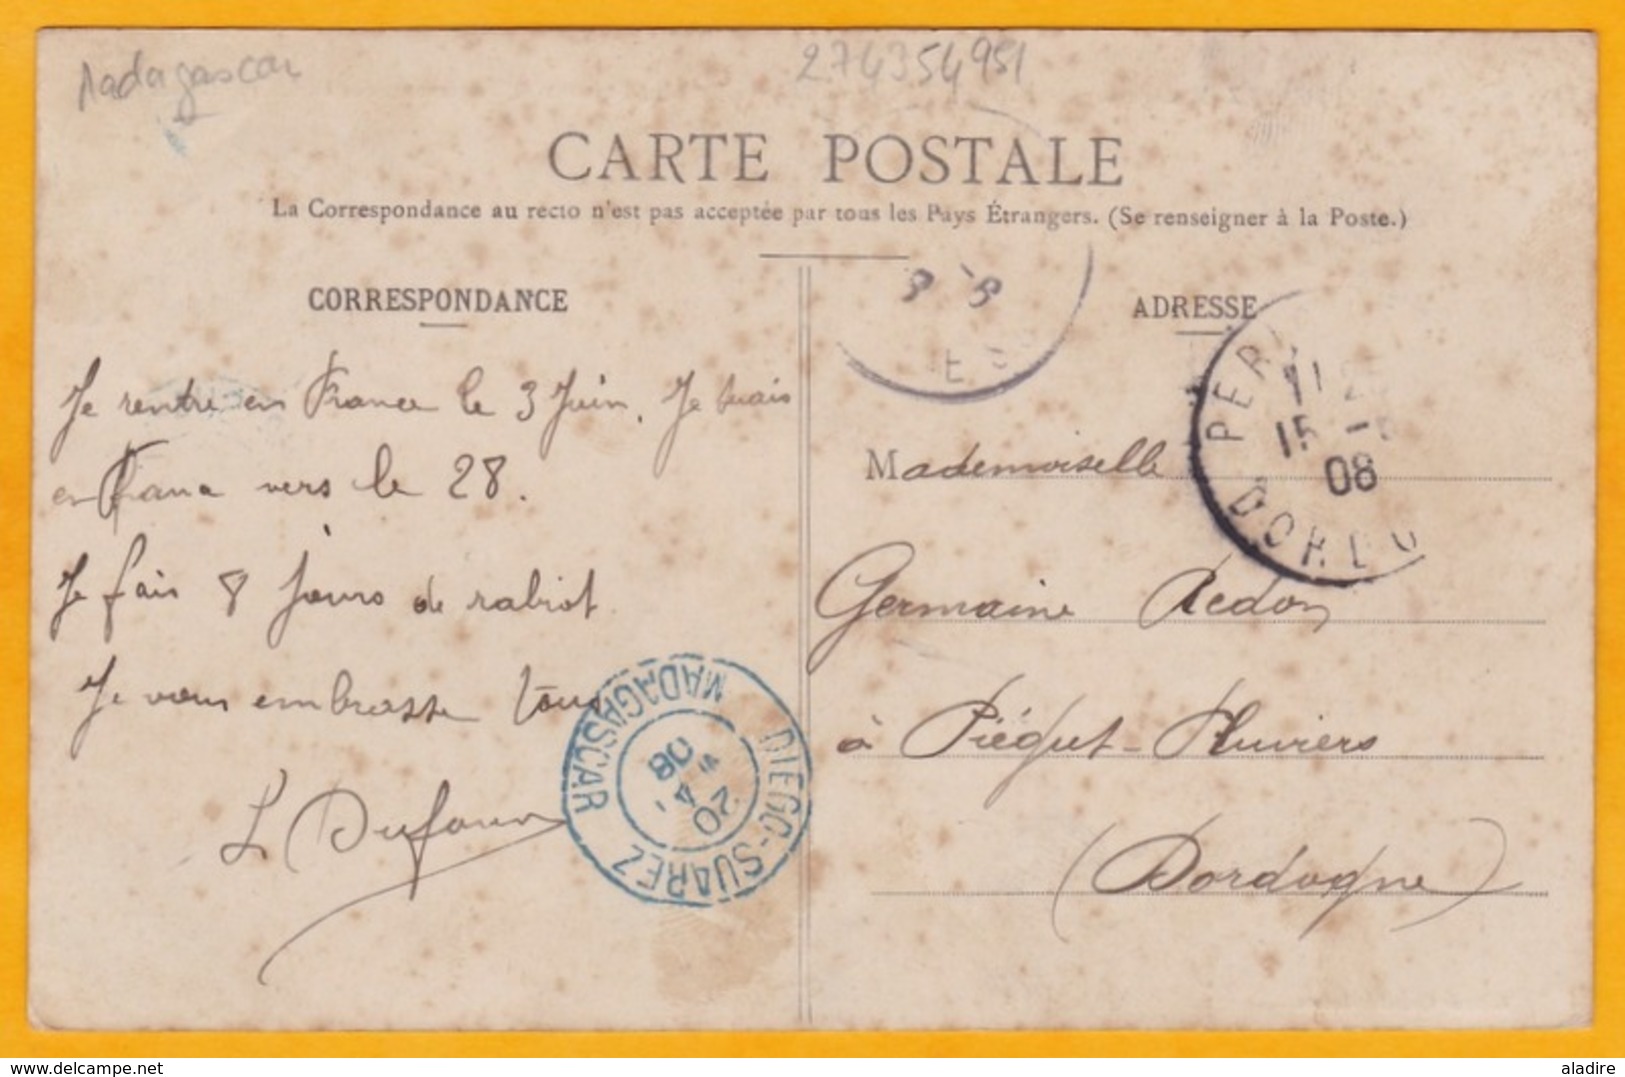 Madagascar
274354951
CARTE POSTALE
La Correspondance au recto n'est pas acceptée par tous les Pays Étrangers. (Se renseigner à la Poste.)
CORRESPONDANCE
Je rentre en France le 3 Juin. Je
en France vers le 28.
Je fais 8 jours de rabiot
Je vous embrasse tous
L Dufour
MADAGASCAR
DIEGO-SUAREZ
20
4
08
ADRESSE
PERI
15
08
DORDO
Mademoiselle
Germaine Redon
à Piégut-Pluviers
(Dordogne)
delcampe.net
aladire